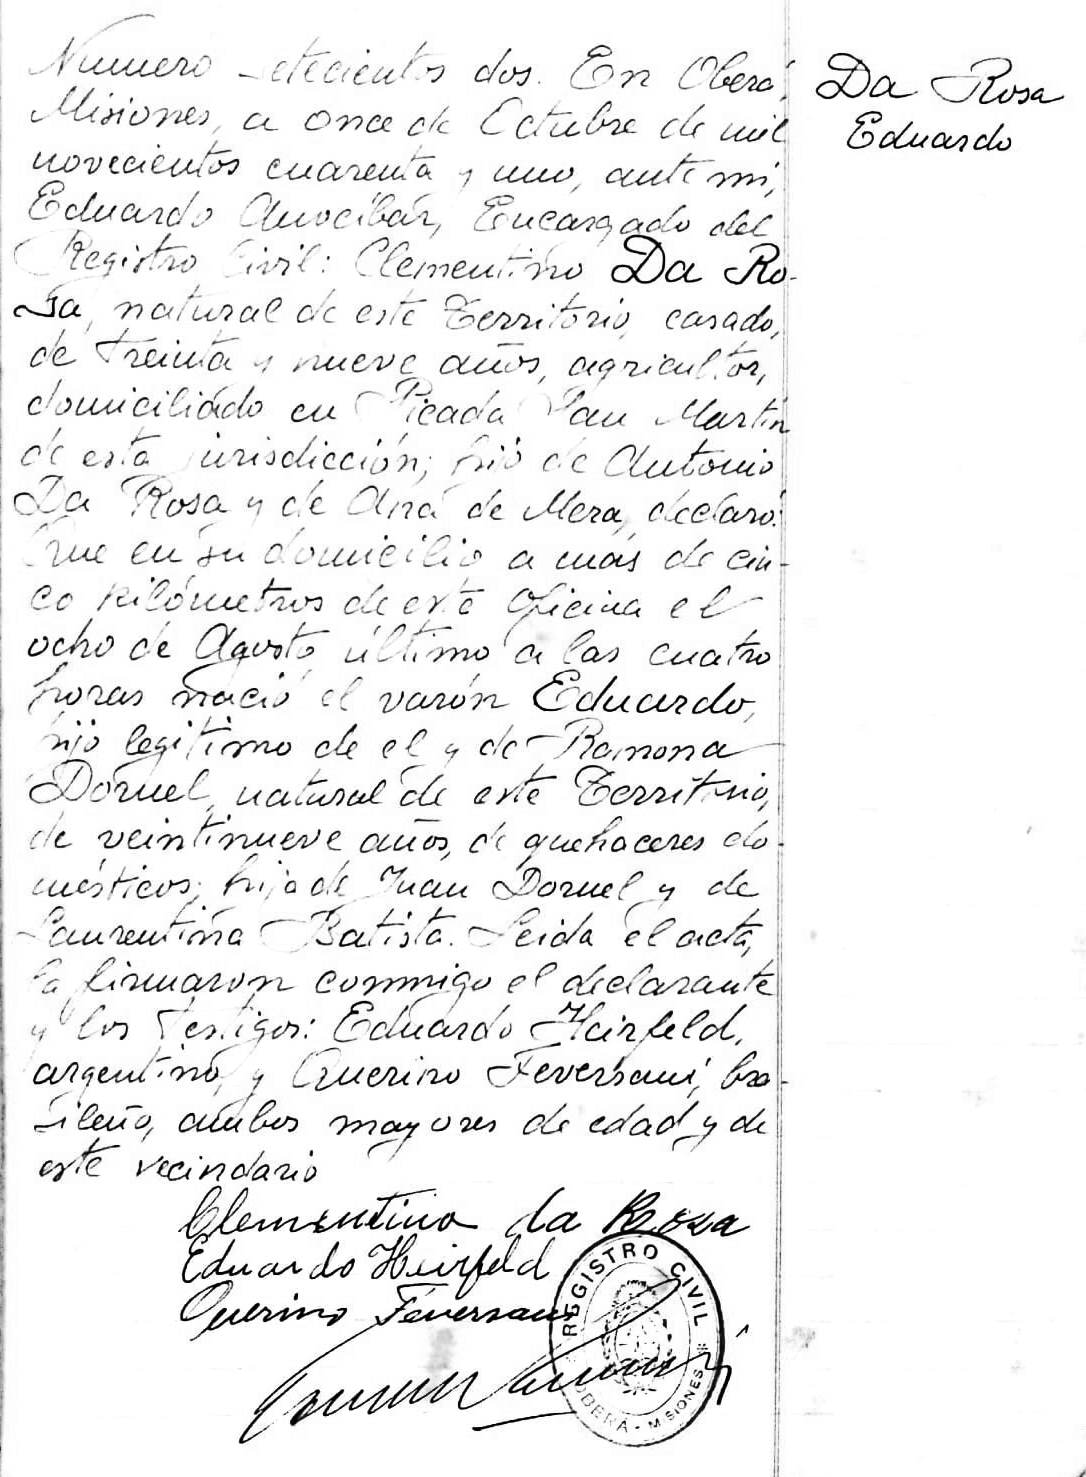 Numero setecientos dos. En Oberá,
Misiones, a once de Octubre de mil
novecientos cuarenta y uno, ante mí,
Eduardo Anocíbar, Encargado del
Registro Civil: Clementino Da Ro-
sa, natural de este Territorio, casado,
de treinta y nueve años, agricultor,
domiciliado en Picada San Martín
de esta jurisdicción; hijo de Antonio
Da Rosa y de Ana de Mera, declaró:
Que en su domicilio a más de cin-
co kilómetros de esta oficina el
ocho de Agosto último a las cuatro
horas nació el varón Eduardo,
hijo legitimo de el y de Ramona
Doruel, natural de este Territorio,
de veintinueve años, de quehaceres do-
mésticos; hija de Juan Doruel y de
Laurentina Batista. Leida el acta,
la firmaron conmigo el declarante
y los testigos: Eduardo Heirfeld,
argentino, y Querino Feversani, bra-
sileño, ambos mayores de edad y de
este vecindario
Clementino da Rosa
Eduardo Heirfeld
Querino Feversani
REGISTRO CIVIL
OBERÁ - MISIONES
Da Rosa
Eduardo